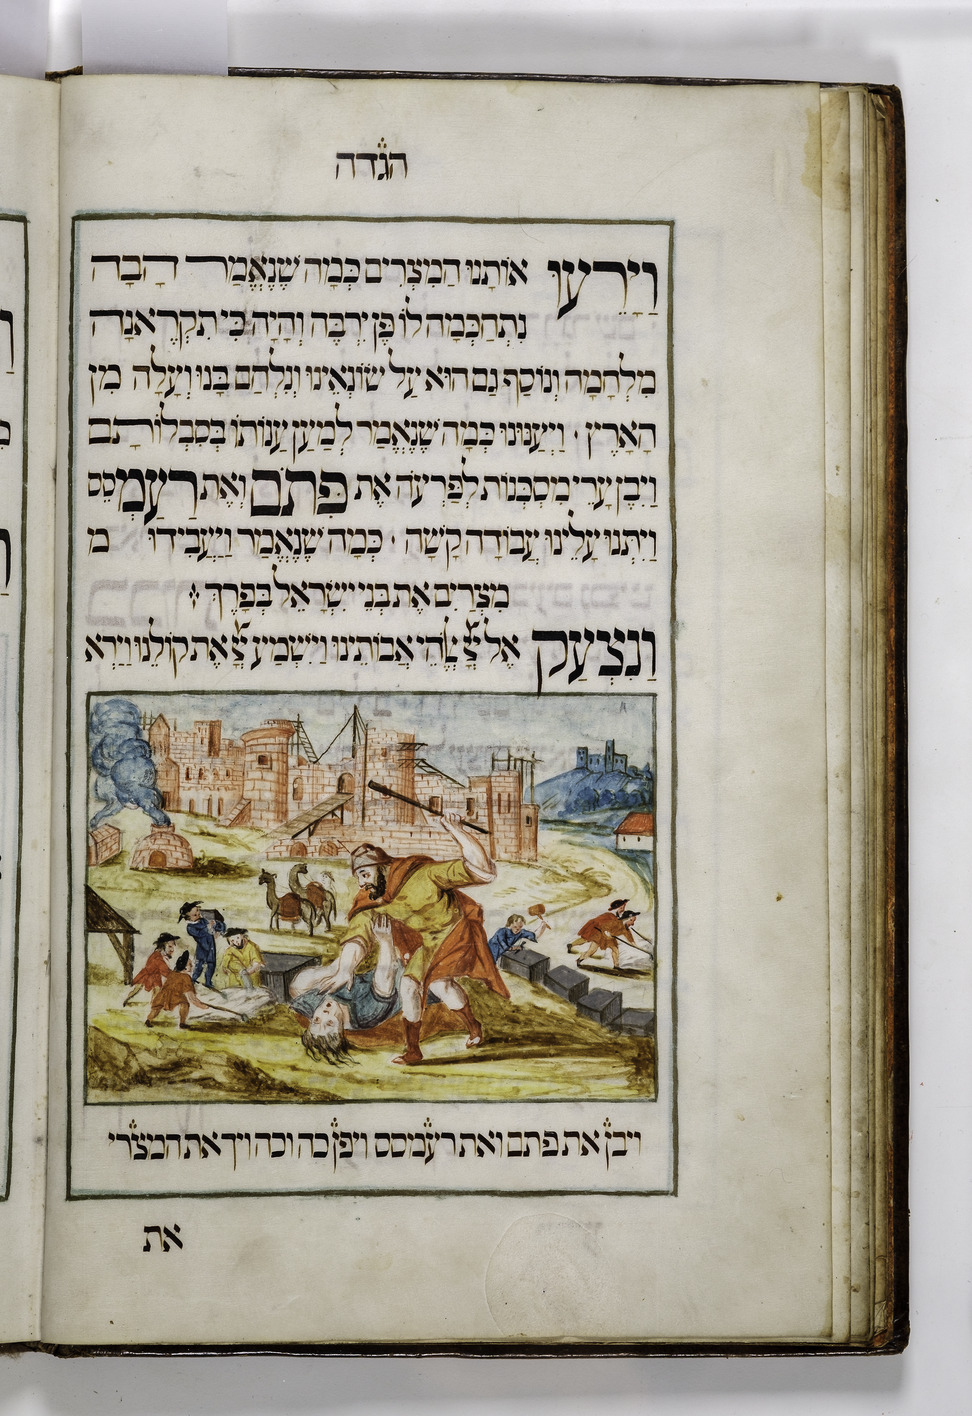 הגדה
וַיָרֵעוּ אוֹתָנוּ הַמִצְרִים כְּמָה שֶׁנֶאֱמַר הָבָה
נִתְחַכְּמָה לוֹ פֶּן יִרְבֶּה וְהָיָה כִּי תִקְרֶאנָה
מִלְחָמָה וְנוֹסַף גַם הוּא עַל שׂוֹנְאֵינוּ וְנִלְחַם בָּנוּ וְעָלָה מִן
הָאָרֶץ · וַיְעַנּוּנוּ כְּמָה שֶׁנֶאֱמַר לְמַעַן עַנוֹתוֹ בְּסִבְלוֹתָם
וַיִבֶן עָרֵי מִסְכְּנוֹת לְפַרְעֹה אֶת פִּתֹם וְאֶת רַעַמְסֵס
וַיִתְּנוּ עָלֵינוּ עֲבוֹדָה קָשָׁה · כְּמָה שֶׁנֶאֱמַר וַיַעֲבִידוּ מ
מִצְרַיִם אֶת בְּנֵי יִשְׂרָאֵל בְּפָרֶךְ
וַנִצְעַק אֶל צָ אֱלֹהֵי אֲבוֹתֵינוּ וַיִשְׁמַע צָ אֶת קוֹלֵנוּ וַיַרְא
ויבן את פתם ואת רעמסס ויפן כה וכה ויך את המצרי
את